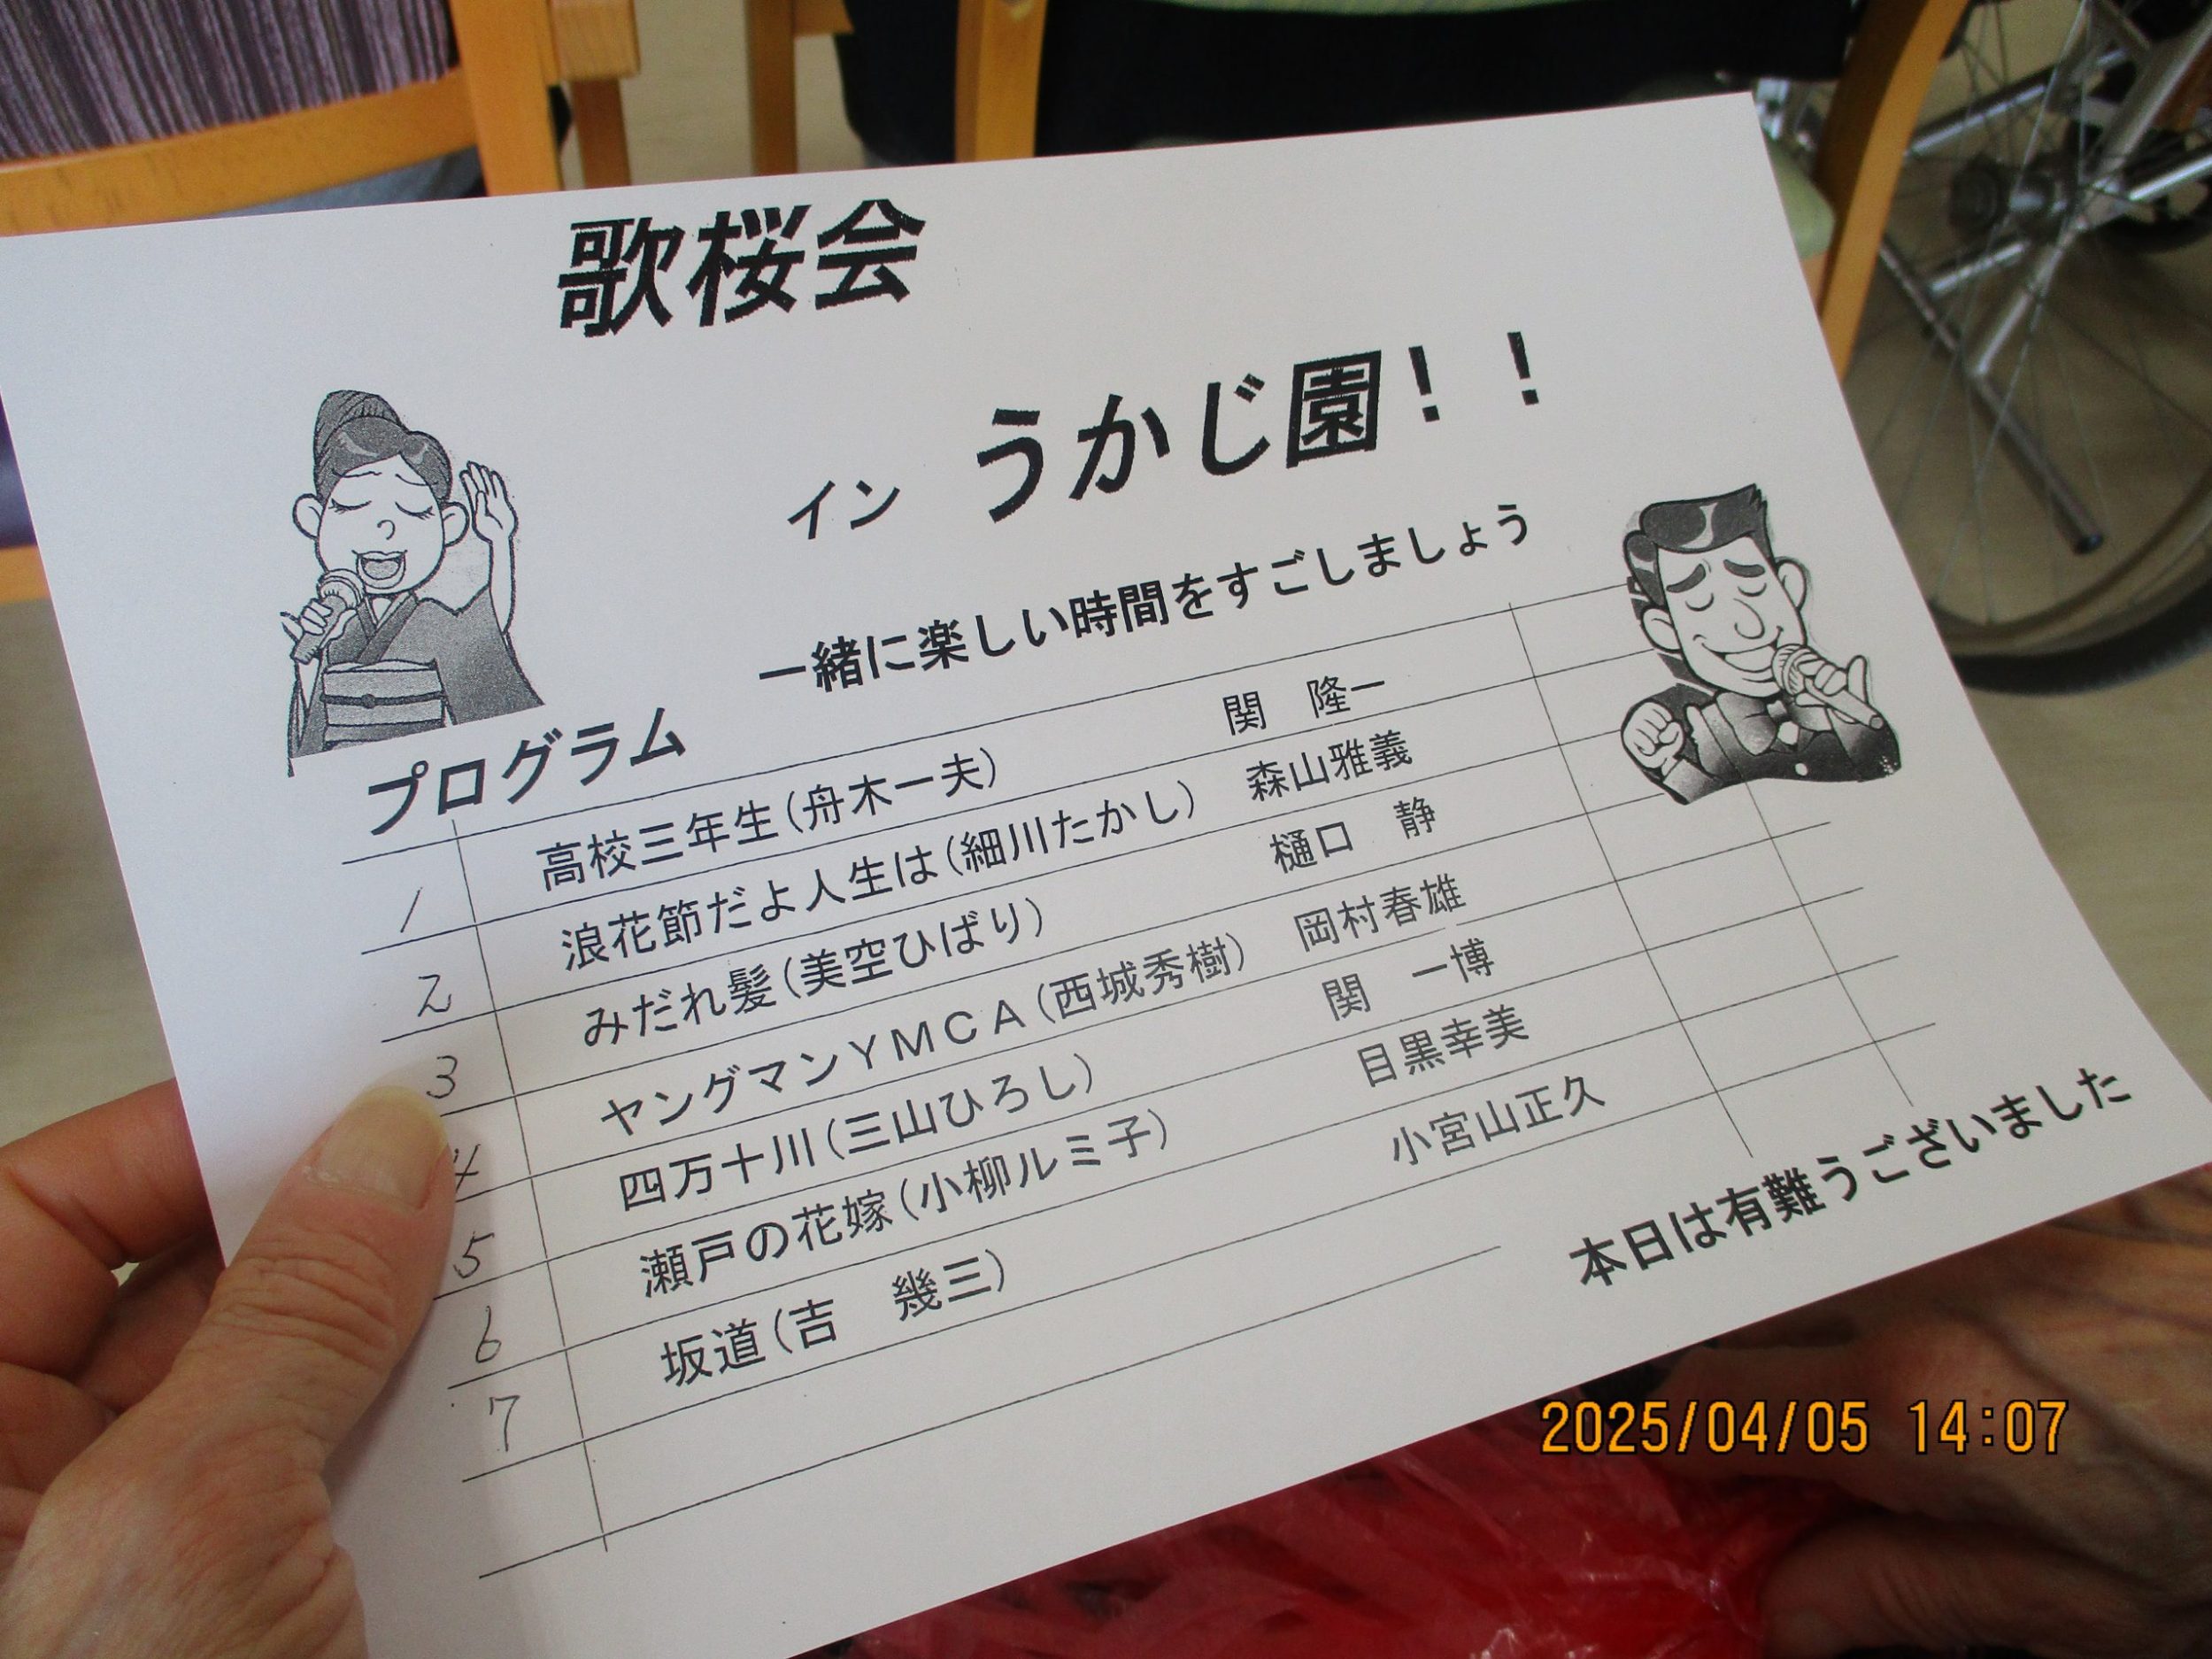 歌桜会
イン うかじ園！！
一緒に楽しい時間をすごしましょう
プログラム
1 高校三年生(舟木一夫) 関 隆一
2 浪花節だよ人生は(細川たかし) 森山雅義
3 みだれ髪(美空ひばり) 樋口 静
4 ヤングマンYMCA(西城秀樹) 岡村春雄
5 四万十川(三山ひろし) 関 一博
6 瀬戸の花嫁(小柳ルミ子) 目黒幸美
7 坂道(吉 幾三) 小宮山正久
本日は有難うございました
2025/04/05 14:07